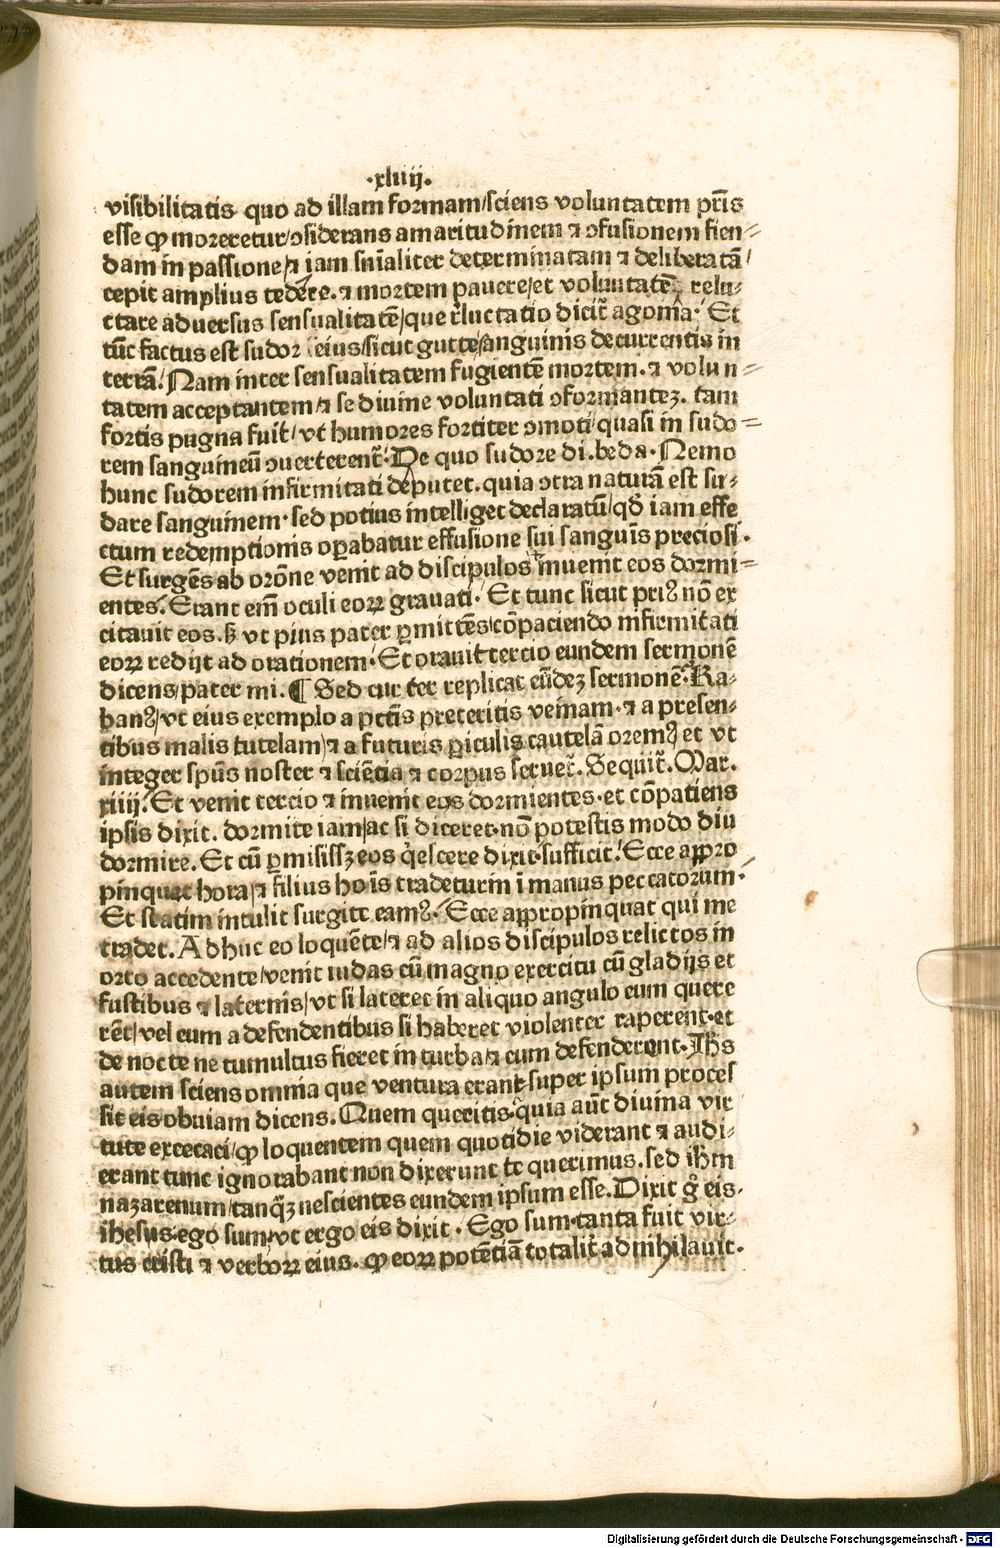 ·xliiij.
visibilitatis quo ad illam formam/sciens voluntatem pr̃is
esse ꝙ moreretur/ꝯsiderans amaritudinem ⁊ ꝯfusionem fien⸗
dam in passione/⁊ iam finaliter determinatam ⁊ deliberatā/
cepit amplius tedere.⁊ mortem pauere/et voluntatē relu⸗
ctare aduersus sensualitatē/que r̃luctatio dicit̃ agonia· Et
tūc factus est sudor eius/sicut gutte sanguinis decurrentis in
terrā. Nam inter sensualitatem fugientē mortem.⁊ volun⸗
tatem acceptantem/⁊ se diuine voluntati ꝯformantez. tam
fortis pugna fuit/vt humores fortiter ꝯmoti/quasi in sudo⸗
rem sanguineū ꝯuerterent̃. De quo sudore di.beda. Nemo
hunc sudorem infirmitati deputet.quia ꝯtra naturā est su⸗
dare sanguinem·sed potius intelliget declaratū/qđ iam effe
ctum redemptionis oꝑabatur effusione sui sanguīs preciosi.
Et surgēs ab orōne venit ad discipulos ⁊ inuenit eos dormi⸗
entes. Erant em̄ oculi eoꝝ grauati. Et tunc sicut priꝰ nō ex
citauit eos.sꝫ vt pius pater ꝑmittēs/cōpaciendo infirmitati
eoꝝ redijt ad orationem. Et orauit tercio eundem sermonē
dicens/pater mi. ¶ Sed cur ter replicat eūdez sermonē. Ra⸗
banꝰ/vt eius exemplo a pctīs preteritis veniam.⁊ a presen⸗
tibus malis tutelam/⁊ a futuris ꝑiculis cautelā oremꝰ et vt
integer spūs noster ⁊ sciētia ⁊ corpus seruet̃. Sequit̃. Mar.
xiiij. Et venit tercio ⁊ inuenit eos dormientes.et cōpatiens
ipsis dixit. dormite iam/ac si diceret.nō potestis modo diu
dormire. Et cū ꝑmisissꝫ eos q̇escere dixit.sufficit. Ecce appro
pinquat hora/⁊ filius hoīs tradetur in ī manus peccatorum.
Et statim intulit surgite eamꝰ. Ecce appropinquat qui me
tradet. Adhuc eo loquēte/⁊ ad alios discipulos relictos in
orto accedente/venit iudas cū magno exercitu cū gladijs et
fustibus ⁊ laternis/vt si lateret in aliquo angulo eum quere
rēt/vel eum a defendentibus si haberet violenter raperent.et
de nocte ne tumultus fieret in turba/⁊ eum defenderent. Ihs̄
autem sciens omnia que ventura erant super ipsum proces
sit eis obuiam dicens. Quem queritis.quia aūt diuina vir
tute excecati/ꝙ loquentem quem quotidie viderant ⁊ audi⸗
erant tunc ignorabant non dixerunt te querimus. sed ihm̄
nazarenum/tanq̃z nescientes eundem ipsum esse. Dixit gͦ eis.
ihesus.ego sum.vt ergo eis dixit. Ego sum.tanta fuit vir⸗
tus cristi ⁊ verboꝝ eius. ꝙ eoꝝ potētiā totalit̃ adnihilauit.
Digitalisierung gefördert durch die Deutsche Forschungsgemeinschaft - DFG